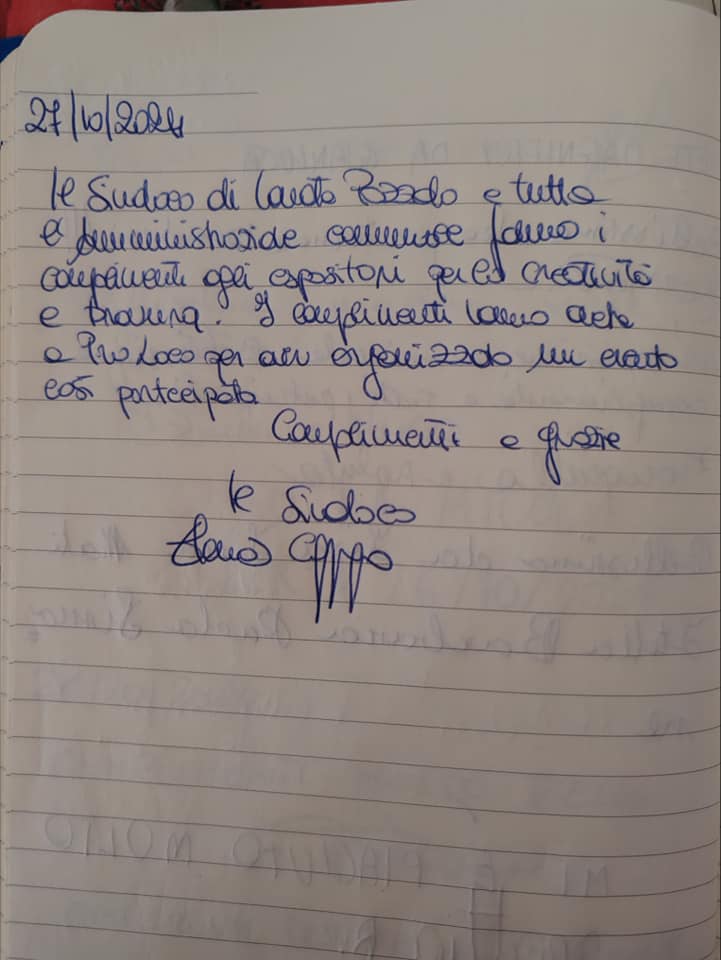 27/10/2024
Il Sindaco di Carato e tutta
l'Amministrazione comunale fanno i
complimenti agli espositori per la creatività
e bravura. I complimenti vanno anche
a Pro Loco per aver organizzado un evento
così partecipato
Complimenti e grazie
Il Sindaco